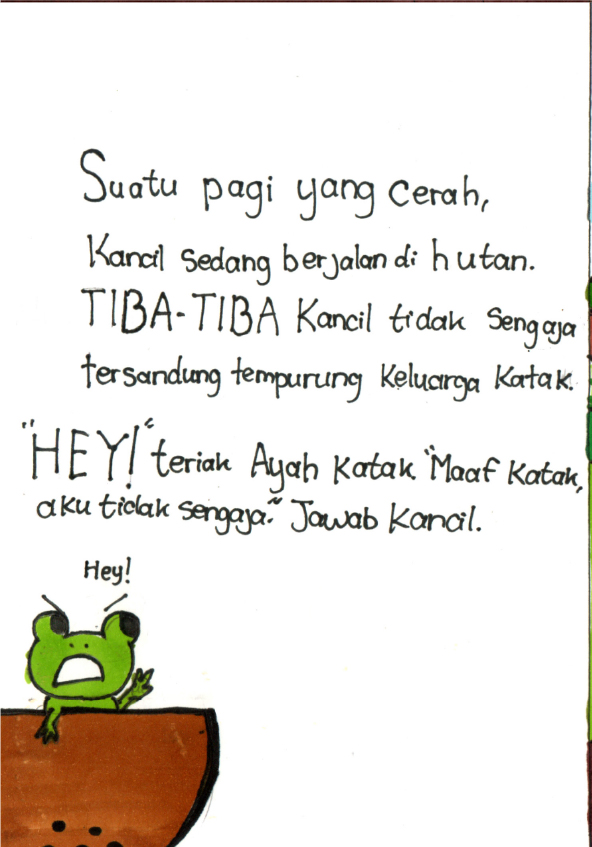 Suatu pagi yang cerah,
Kancil sedang berjalan di hutan.
TIBA-TIBA Kancil tidak sengaja
tersandung tempurung Keluarga Katak.
"HEY!" teriak Ayah Katak "Maaf Katak,
aku tidak sengaja." Jawab Kancil.
Hey!